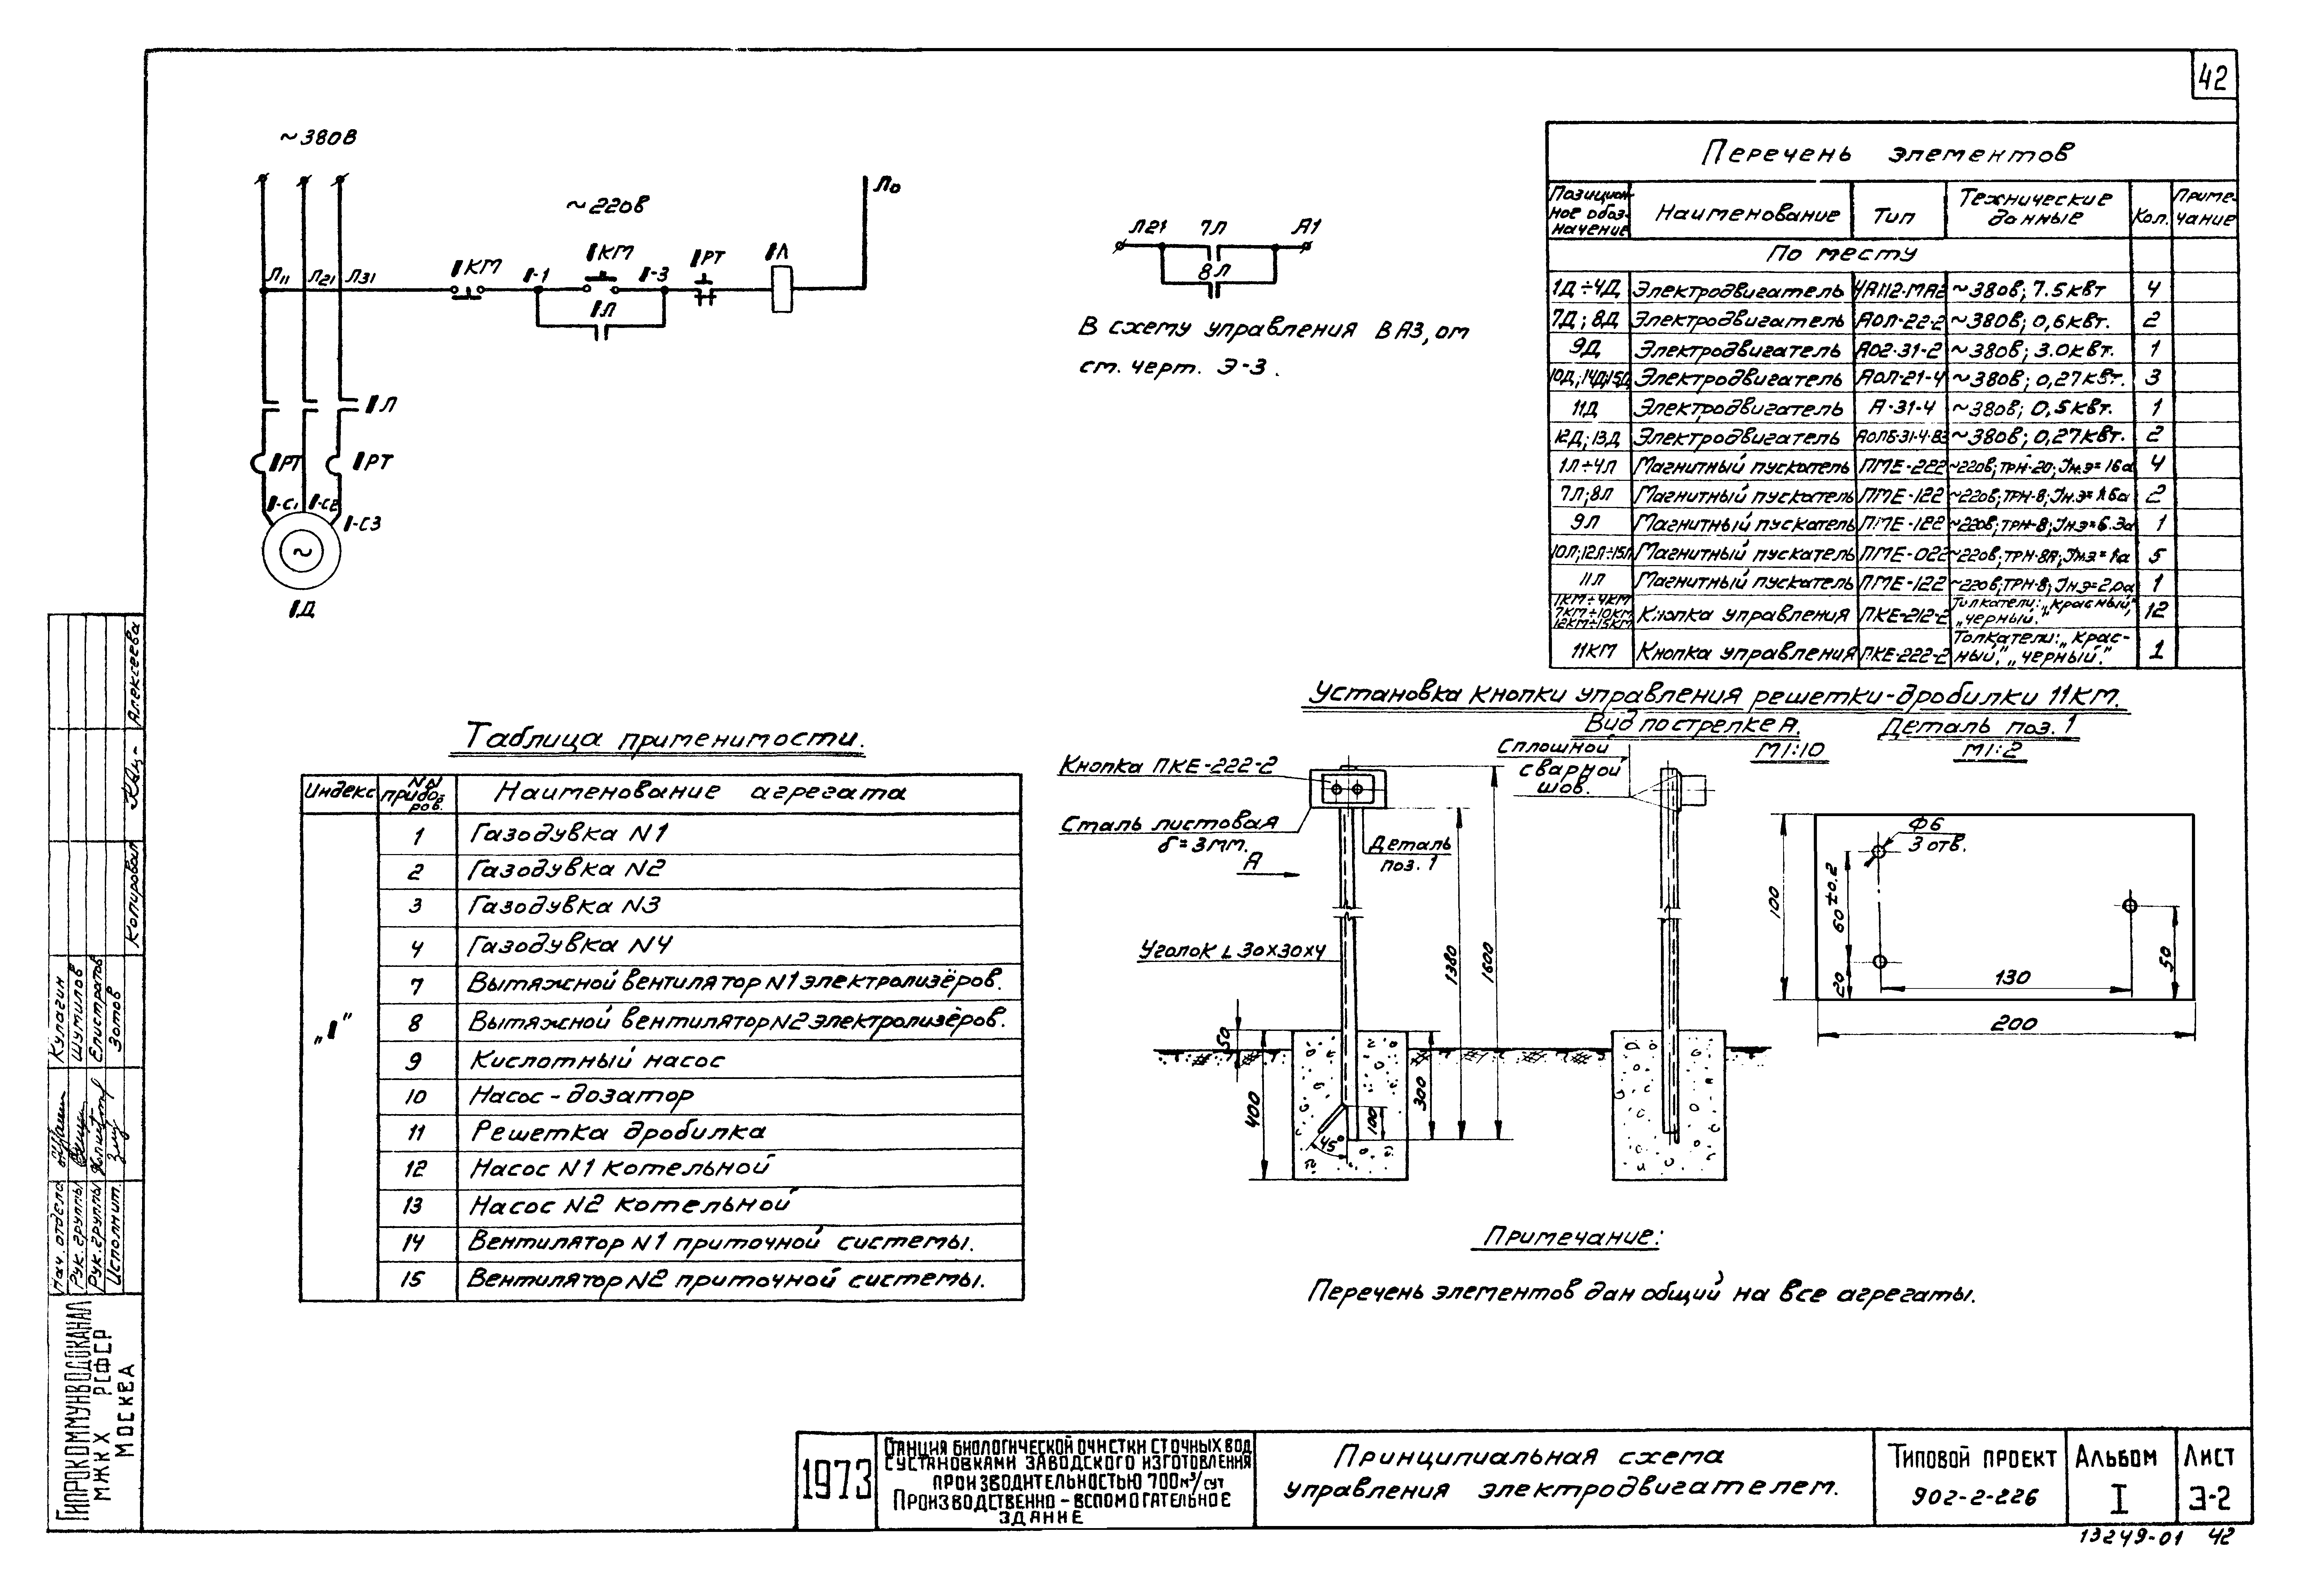 42
~380В
~220В
Л0
Л11 Л21 Л31
IКМ
I-1
IКМ
I-3
IРТ
IЛ
IЛ
IЛ
IРТ
IРТ
I-С1
I-С2
I-С3
~
IД
Л21 7Л А1
8Л
В схему управления ВАЗ, от
ст. черт. Э-3.
Перечень элементов
Позицион-
ное обоз-
начение
Наименование
Тип
Технические
данные
Кол.
Приме-
чание
По месту
1Д÷4Д Электродвигатель 4А112-МА2 ~380в; 7.5квт 4
7Д; 8Д Электродвигатель АОЛ-22-2 ~380в; 0,6квт. 2
9Д Электродвигатель АО2-31-2 ~380в; 3.0квт. 1
10Д;14Д;15Д Электродвигатель АОЛ-21-4 ~380в; 0,27квт. 3
11Д Электродвигатель А-31-4 ~380в; 0,5квт. 1
12Д;13Д Электродвигатель АОЛБ-31-4-В3 ~380в; 0,27квт. 2
1Л÷4Л Магнитный пускатель ПМЕ-222 ~220в; ТРН-20; Iн.э=16а 4
7Л;8Л Магнитный пускатель ПМЕ-122 ~220в; ТРН-8; Iн.э=1.6а 2
9Л Магнитный пускатель ПМЕ-122 ~220в; ТРН-8; Iн.э=6.3а 1
10Л;12Л÷15Л Магнитный пускатель ПМЕ-022 ~220в; ТРН-8А; Iн.э=1а 5
11Л Магнитный пускатель ПМЕ-122 ~220в; ТРН-8; Iн.э=2.0а 1
1КМ÷4КМ
7КМ÷10КМ
12КМ÷15КМ
Кнопка управления ПКЕ-212-2
Толкатели: „Красный",
„черный."
12
11КМ Кнопка управления ПКЕ-222-2
Толкатели: „Крас-
ный", „черный."
1
Установка кнопки управления решетки-дробилки 11КМ.
Вид по стрелке А.
М1:10
Деталь поз. 1
М1:2
Кнопка ПКЕ-222-2
Сталь листовая
δ=3мм.
А
Деталь
поз. 1
Сплошной
сварной
шов.
Уголок L 30х30х4
1380
1600
50
400
300
100
45°
Ф6
3 отв.
100
60±0.2
20
130
50
200
Таблица применитости.
Индекс
NN
прибо-
ров.
Наименование агрегата
„I"
1 Газодувка N1
2 Газодувка N2
3 Газодувка N3
4 Газодувка N4
7 Вытяжной вентилятор N1 электролизёров.
8 Вытяжной вентилятор N2 электролизёров.
9 Кислотный насос
10 Насос-дозатор
11 Решетка дробилка
12 Насос N1 котельной
13 Насос N2 котельной
14 Вентилятор N1 приточной системы.
15 Вентилятор N2 приточной системы.
Примечание:
Перечень элементов дан общий на все агрегаты.
Алексеева
Копировал
Нач. отдела Кулагин
Рук. группы Шумилов
Рук. группы Елистратов
Исполнит. Зотов
Гипрокоммунводоканал
МЖКХ РСФСР
Москва
1973
Станция биологической очистки сточных вод
с установками заводского изготовления
производительностью 700м³/сут
Производственно-вспомогательное
здание
Принципиальная схема
управления электродвигателем.
Типовой проект
902-2-226
Альбом
I
Лист
Э-2
13249-01 42